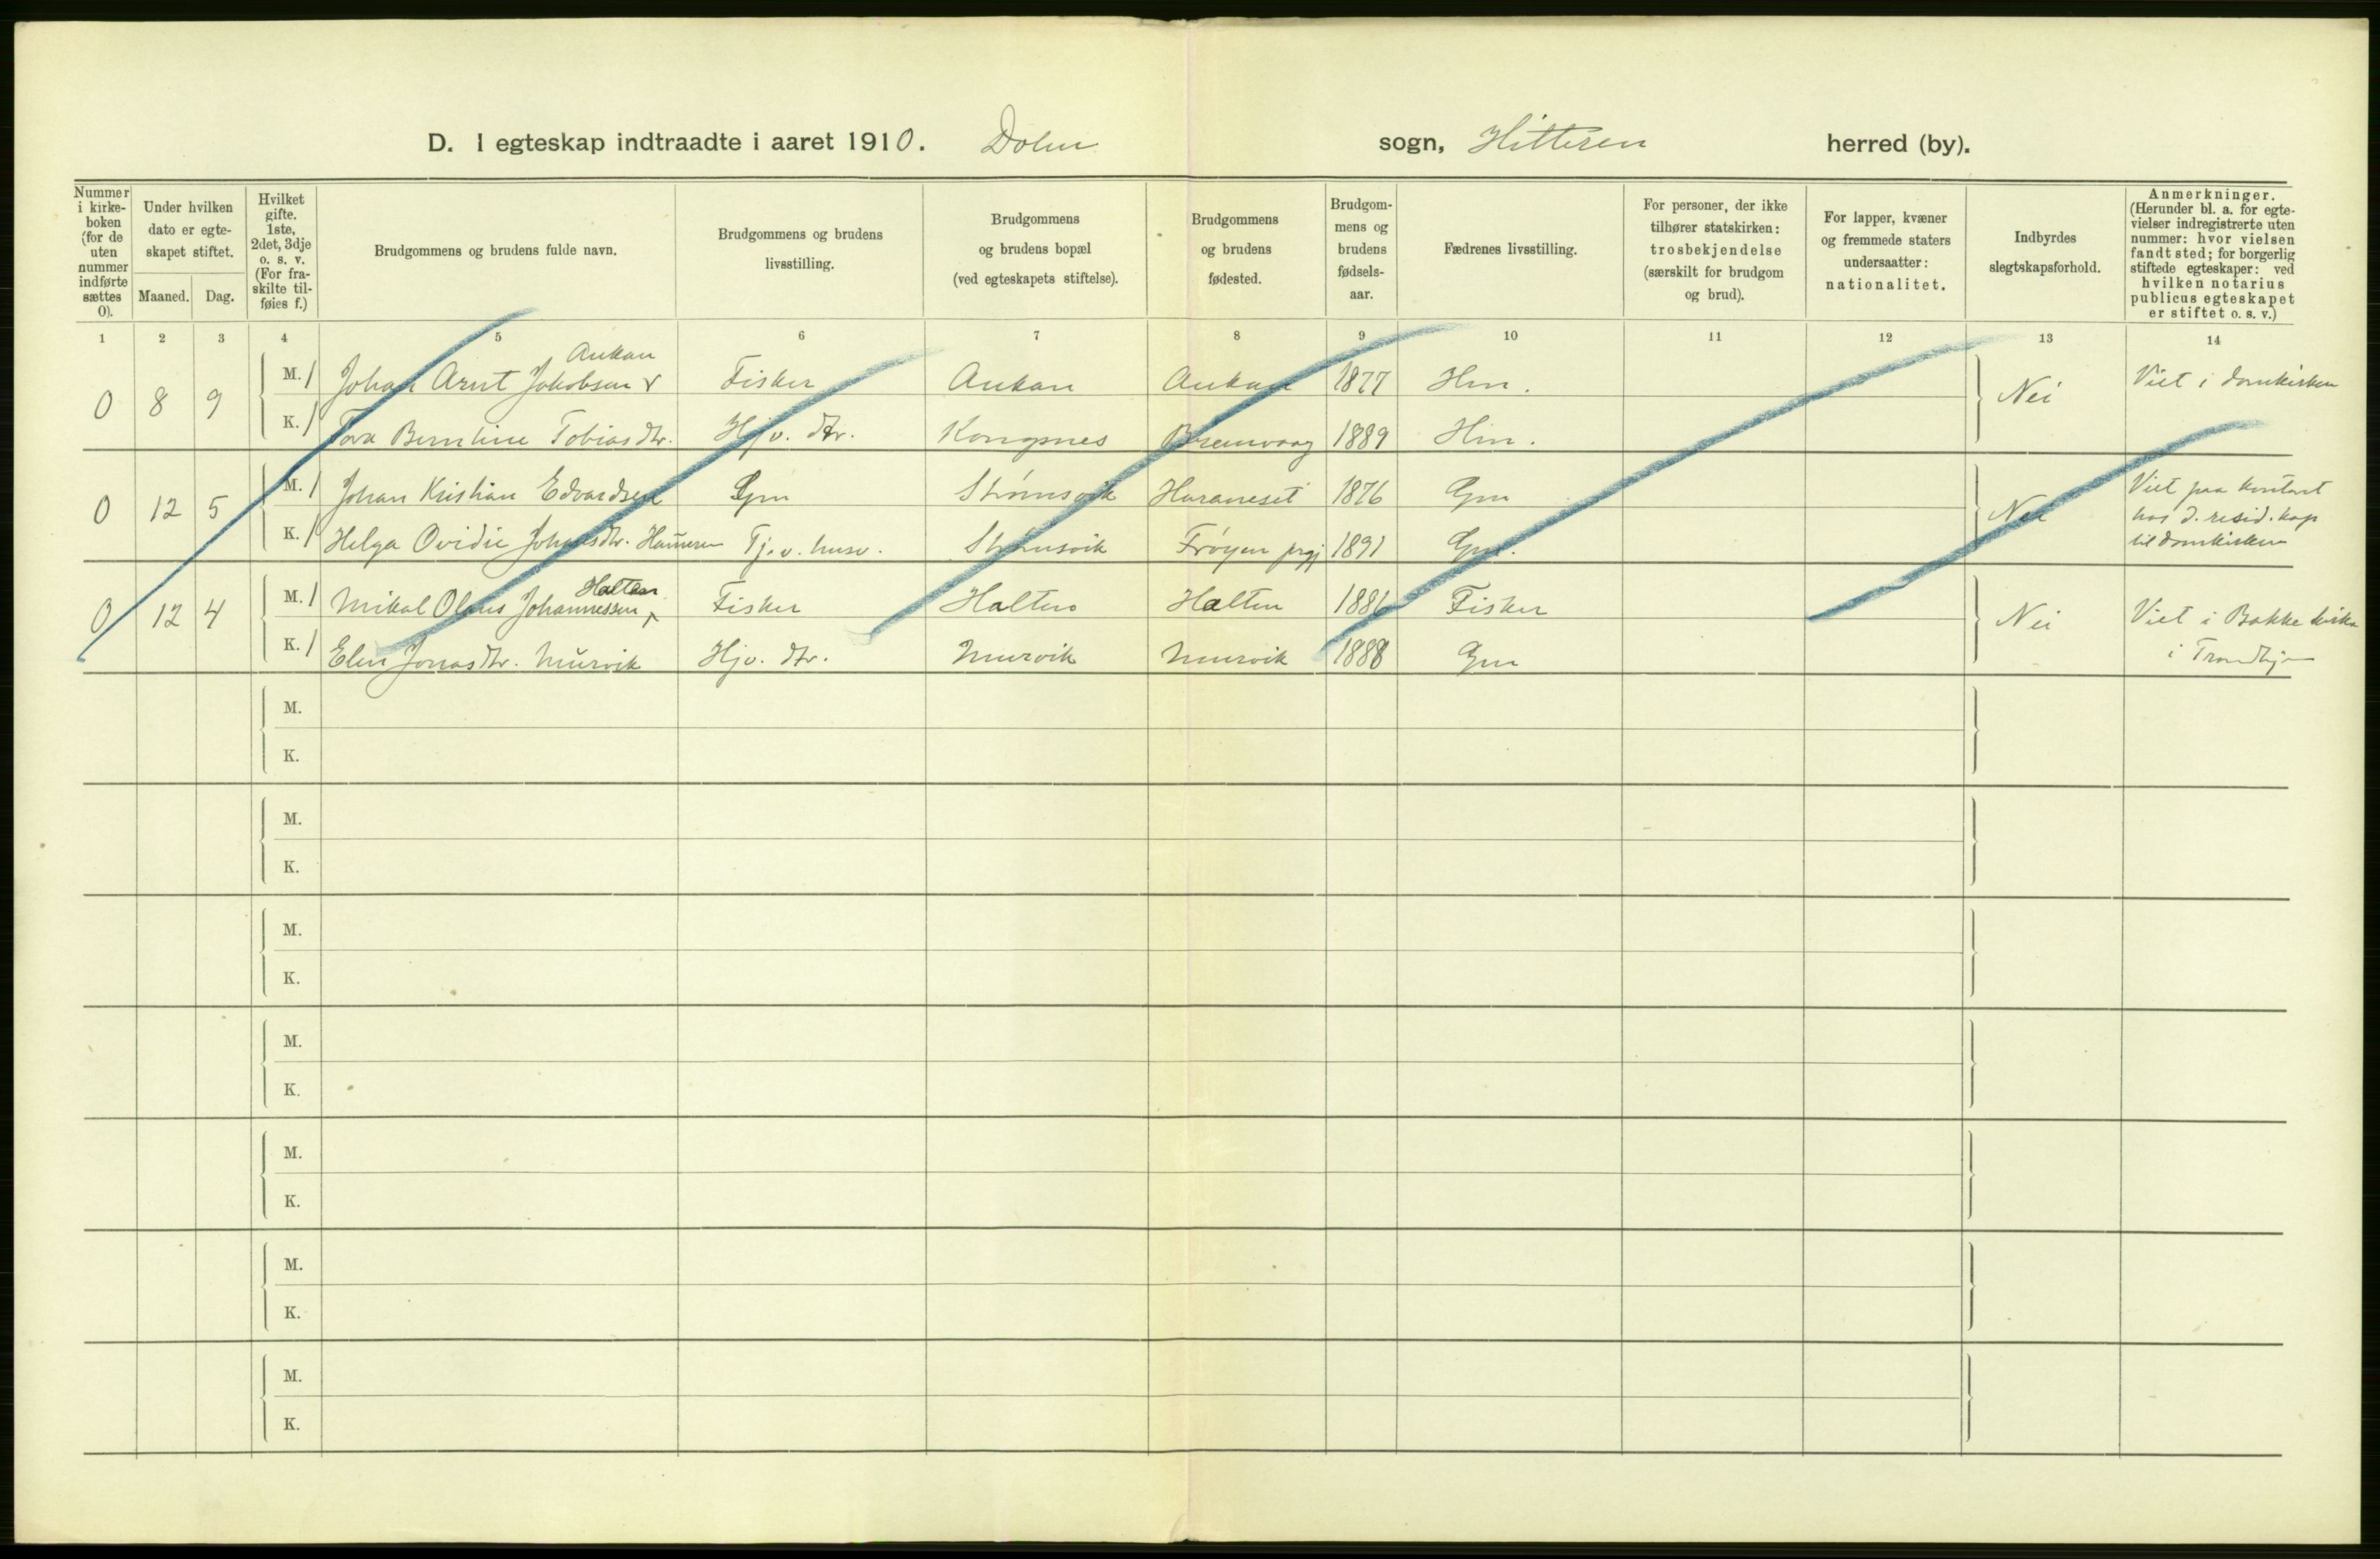 D. I egteskap indtraadte i aaret 1910. Dolm sogn, Hitteren herred (by).
Nummer i kirke-boken (for de uten nummer indførte sættes 0).
Under hvilken dato er egte-skapet stiftet.
Maaned. Dag.
Hvilket gifte. 1ste, 2det, 3dje o. s. v. (For fra-skilte til-føies f.)
Brudgommens og brudens fulde navn.
Brudgommens og brudens livsstilling.
Brudgommens og brudens bopæl (ved egteskapets stiftelse).
Brudgommens og brudens fødested.
Brudgom-mens og brudens fødsels-aar.
Fædrenes livsstilling.
For personer, der ikke tilhører statskirken: trosbekjendelse (særskilt for brudgom og brud).
For lapper, kvæner og fremmede staters undersaatter: nationalitet.
Indbyrdes slegtskapsforhold.
Anmerkninger. (Herunder bl. a. for egte-vielser indregistrerte uten nummer: hvor vielsen fandt sted; for borgerlig stiftede egteskaper: ved hvilken notarius publicus egteskapet er stiftet o. s. v.)
1 2 3 4 5 6 7 8 9 10 11 12 13 14
0 8 9 M. 1 Johan Arnt Jakobsen Aukan Fisker Aukan Aukan 1877 Hm. Nei Viet i domkirken
K. 1 Tora Berntine Tobiasdtr. Hjv. dtr. Kongsnes 1889 Hm.
0 12 5 M. 1 Johan Kristian Edvardsen Gm Strømsvik 1876 Gm Nei Viet paa kontoret
hos d. resid. kap
til domkirken
K. 1 Helga Ovidie Johansdtr. Tj. v. husv. Strømsvik Frøyen prgj 1891 Gm.
0 12 4 M. 1 Mikal Olaus Johannessen Halten Fisker Halten Halten 1886 Fisker Nei Viet i Bakke kirke
i Trondhjem
K. 1 Elen Jonasdtr. Murvik Hjv. dtr. Murvik Murvik 1888 Gm
M.
K.
M.
K.
M.
K.
M.
K.
M.
K.
M.
K.
M.
K.